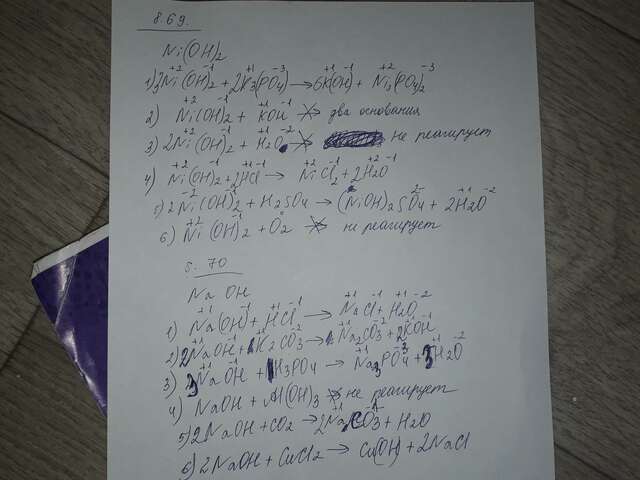 8.69.
Ni(OH)2
1) 3Ni(OH)2 + 2K3(PO4) → 6K(OH) + Ni3(PO4)2
2) Ni(OH)2 + KOH ↛ два основания
3) 2Ni(OH)2 + H2O ↛ не реагирует
4) Ni(OH)2 + 2HCl → NiCl2 + 2H2O
5) 2Ni(OH)2 + H2SO4 → (NiOH)2SO4 + 2H2O
6) Ni(OH)2 + O2 ↛ не реагирует
8.70
NaOH
1) Na(OH) + HCl → NaCl + H2O
2) 2NaOH + K2CO3 → Na2CO3 + 2KOH
3) 3NaOH + H3PO4 → Na3PO4 + 3H2O
4) NaOH + Al(OH)3 ↛ не реагирует
5) 2NaOH + CO2 → 2Na2CO3 + H2O
6) 2NaOH + CuCl2 → Cu(OH) + 2NaCl